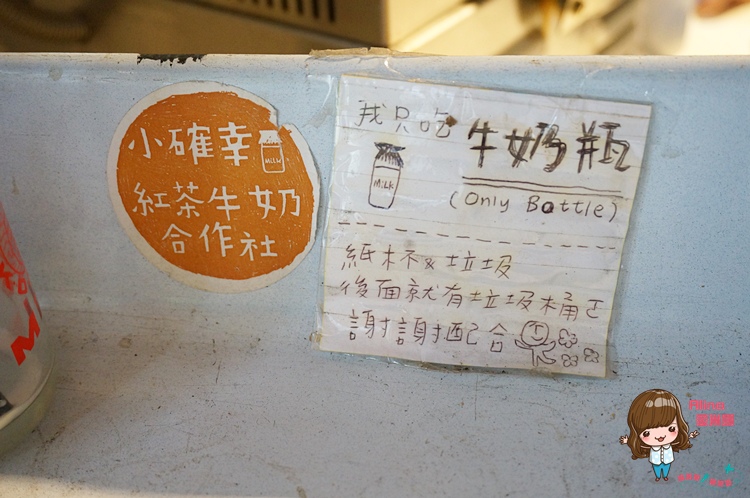 小確幸
MiLK
紅茶牛奶
合作社
我只吃 牛奶瓶
MiLK
(Only Bottle)
紙杯&垃圾
後面就有垃圾桶ㄛ
謝謝配合